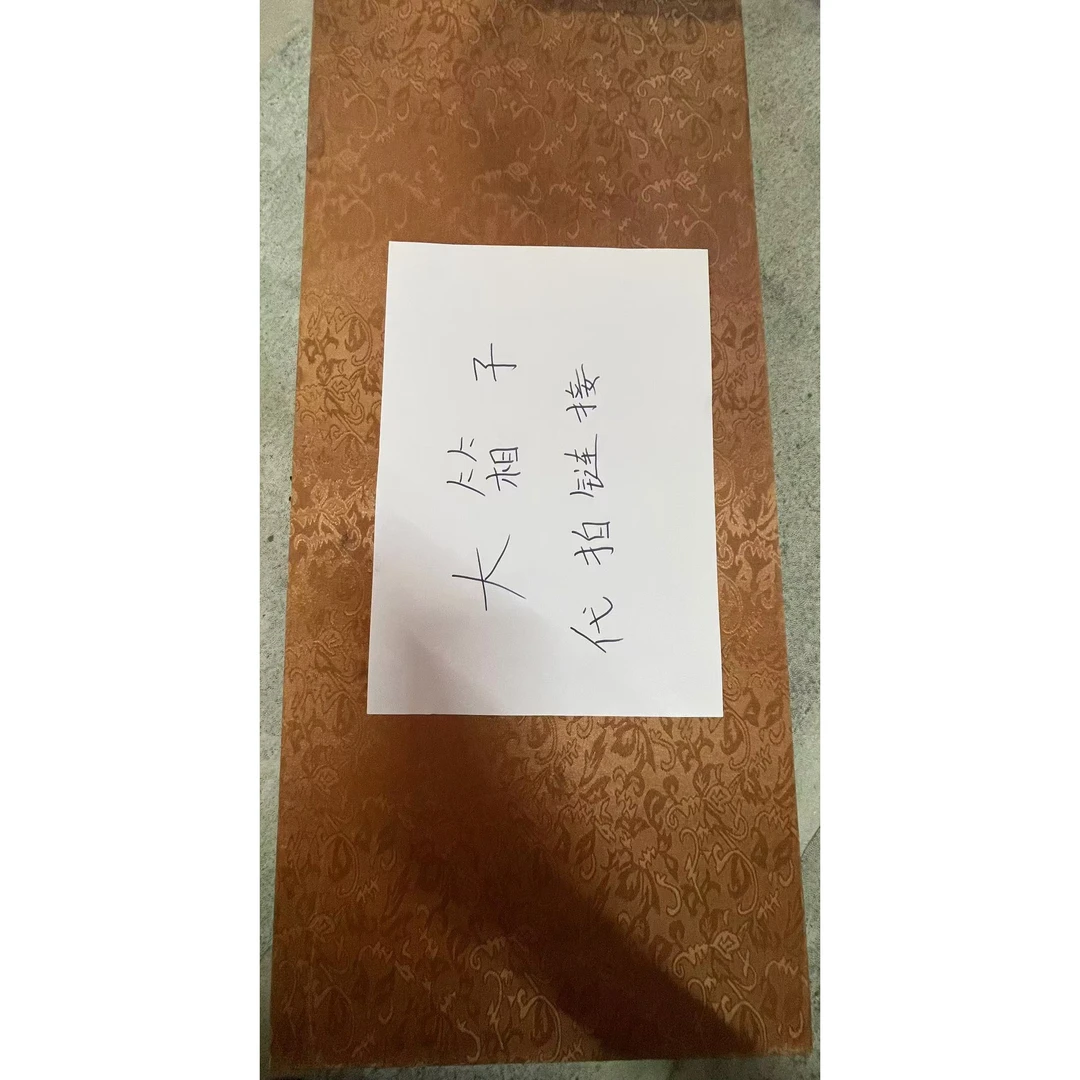 大箱子
代拍链接